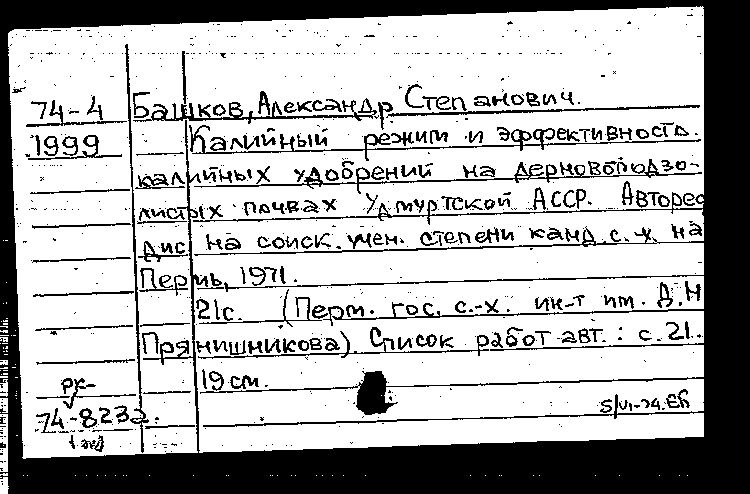 74-4 Башков, Александр Степанович.
1999 Калийный режим и эффективность
калийных удобрений на дерновоподзо-
листых почвах Удмуртской АССР. Авторе
дис на соиск. учен. степени канд. с.-х. на
Пермь, 1971.
21с. (Перм. гос. с.-х. ин-т им. Д.Н
Прянишникова). Список работ авт.: с. 21.
19 см.
РК-
74-8232.